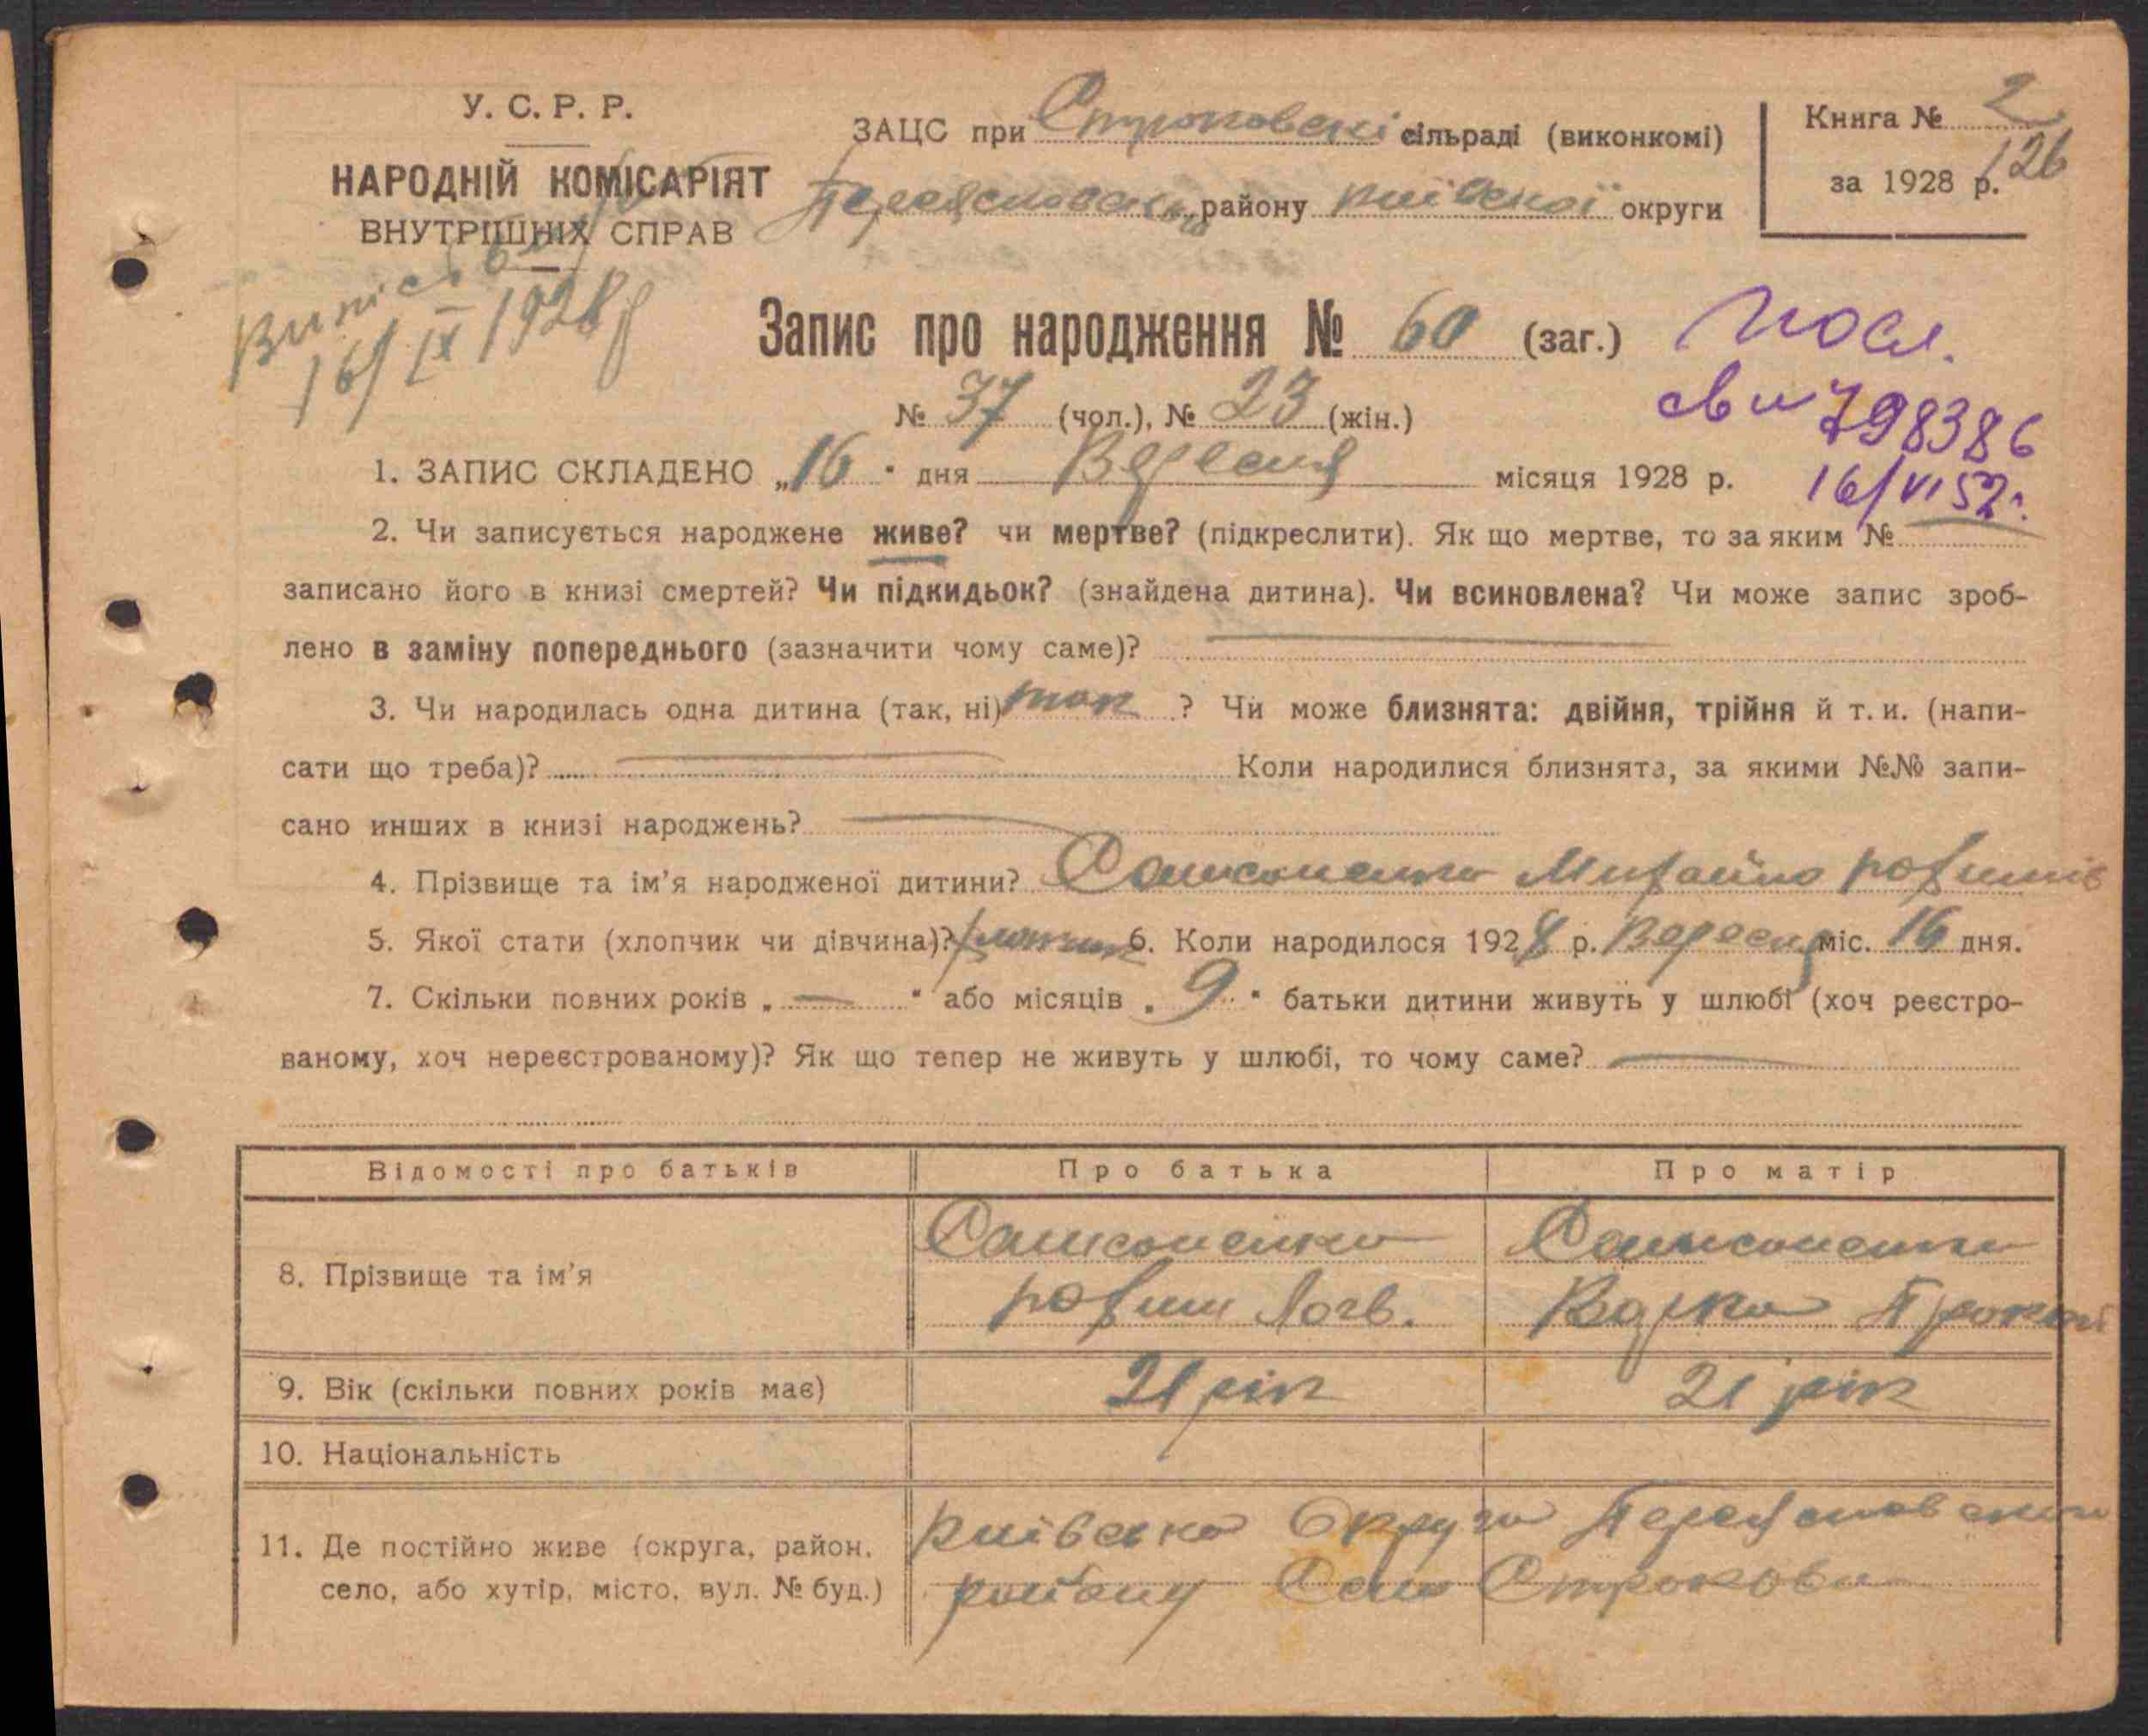 У. С. Р. Р.
НАРОДНІЙ КОМІСАРІЯТ
ВНУТРІШНІХ СПРАВ
ЗАЦС при Строковскі сільраді (виконкомі)
Переяславськ району київської округи
Книга № 2
за 1928 р. 126
16/IX 1928 р
Запис про народження № 60 (заг.)
№ 37 (чол.), № 23 (жін.)
Посл.
св и 798386
16/VI 52 г.
1. ЗАПИС СКЛАДЕНО „16" дня Вересня місяця 1928 р.
2. Чи записується народжене живе? чи мертве? (підкреслити). Як що мертве, то за яким №
записано його в книзі смертей? Чи підкидьок? (знайдена дитина). Чи всиновлена? Чи може запис зроб-
лено в заміну попереднього (зазначити чому саме)?
3. Чи народилась одна дитина (так, ні) так ? Чи може близнята: двійня, трійня й т. и. (напи-
сати що треба)? Коли народилися близнята, за якими №№ запи-
сано инших в книзі народжень?
4. Прізвище та ім'я народженої дитини? Самсоненко Михайло Юхимів
5. Якої стати (хлопчик чи дівчина)? хлопчик 6. Коли народилося 1928 р. Вересня міс. 16 дня.
7. Скільки повних років „ — " або місяців „ 9 " батьки дитини живуть у шлюбі (хоч реєстро-
ваному, хоч нереєстрованому)? Як що тепер не живуть у шлюбі, то чому саме?
Відомості про батьків Про батька Про матір
8. Прізвище та ім'я
Самсоненко
Юхим Логв.
Самсоненко
Варка Прокоп
9. Вік (скільки повних років має) 21 рік 21 рік
10. Національність
11. Де постійно живе (округа, район,
село, або хутір, місто, вул. № буд.)
київська Округа Переяславського
району Село Строкова